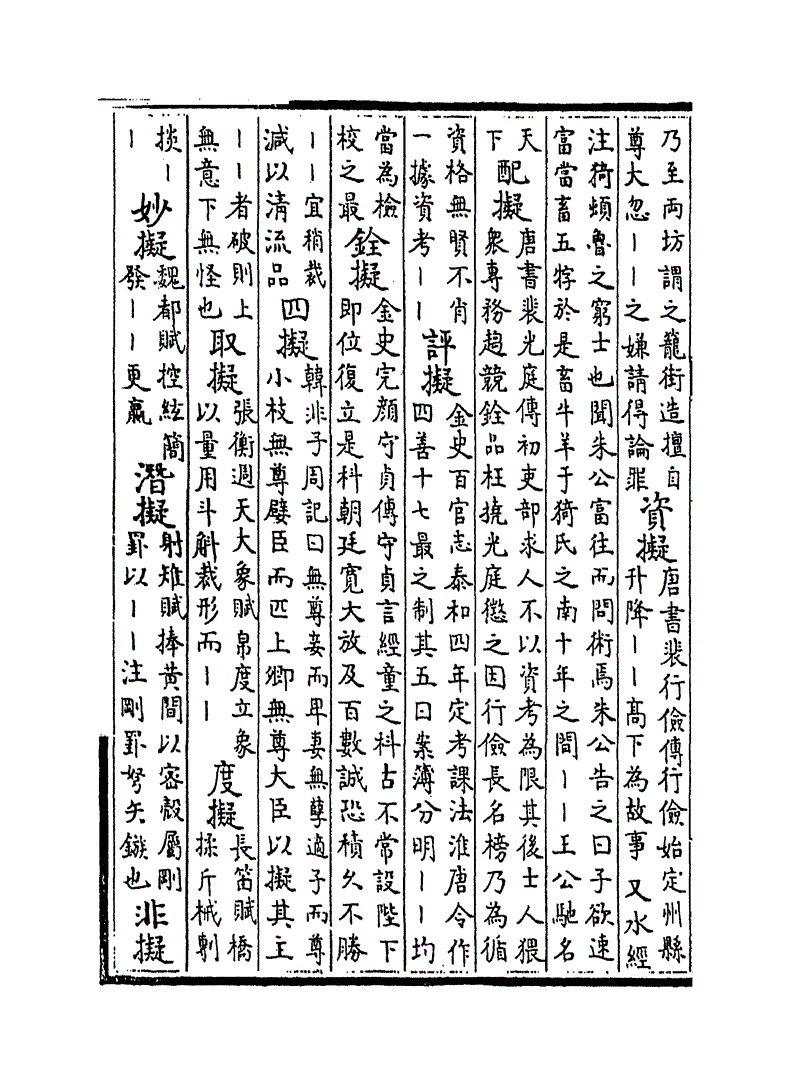 乃至两坊謂之籠街造擅自
尊大忽丨丨之嫌請得論罪
資擬
唐書裴行儉傳行儉始定州縣
升降丨丨髙下為故事 又水經
注猗頓魯之窮士也聞朱公富往而問術焉朱公告之曰子欲速
富當畜五牸於是畜牛羊于猗氏之南十年之間丨丨王公馳名
天
下
配擬
唐書裴光庭傳初吏部求人不以資考為限其後士人猥
衆專務趨競銓品枉撓光庭懲之因行儉長名榜乃為循
資格無賢不肖
一據資考丨丨
評擬
金史百官志泰和四年定考課法淮唐令作
四善十七最之制其五曰案簿分明丨丨均
當為檢
校之最
銓擬
金史完顔守貞傳守貞言經童之科古不常設陛下
即位復立是科朝廷寛大放及百數誠恐積久不勝
丨丨宜稍裁
減以清流品
四擬
韓非子周記曰無尊妾而卑妻無孽適子而尊
小枝無尊嬖臣而匹上卿無尊大臣以擬其主
丨丨者破則上
無意下無怪也
取擬
張衡週天大象賦帛度立象
以量用斗斛裁形而丨丨
度擬
長笛賦橋
採斤械剸
掞丨
丨
妙擬
魏都賦控絃簡
發丨丨更羸
潛擬
射雉賦捧黄間以密彀屬剛
罫以丨丨注剛罫弩矢鏃也
非擬